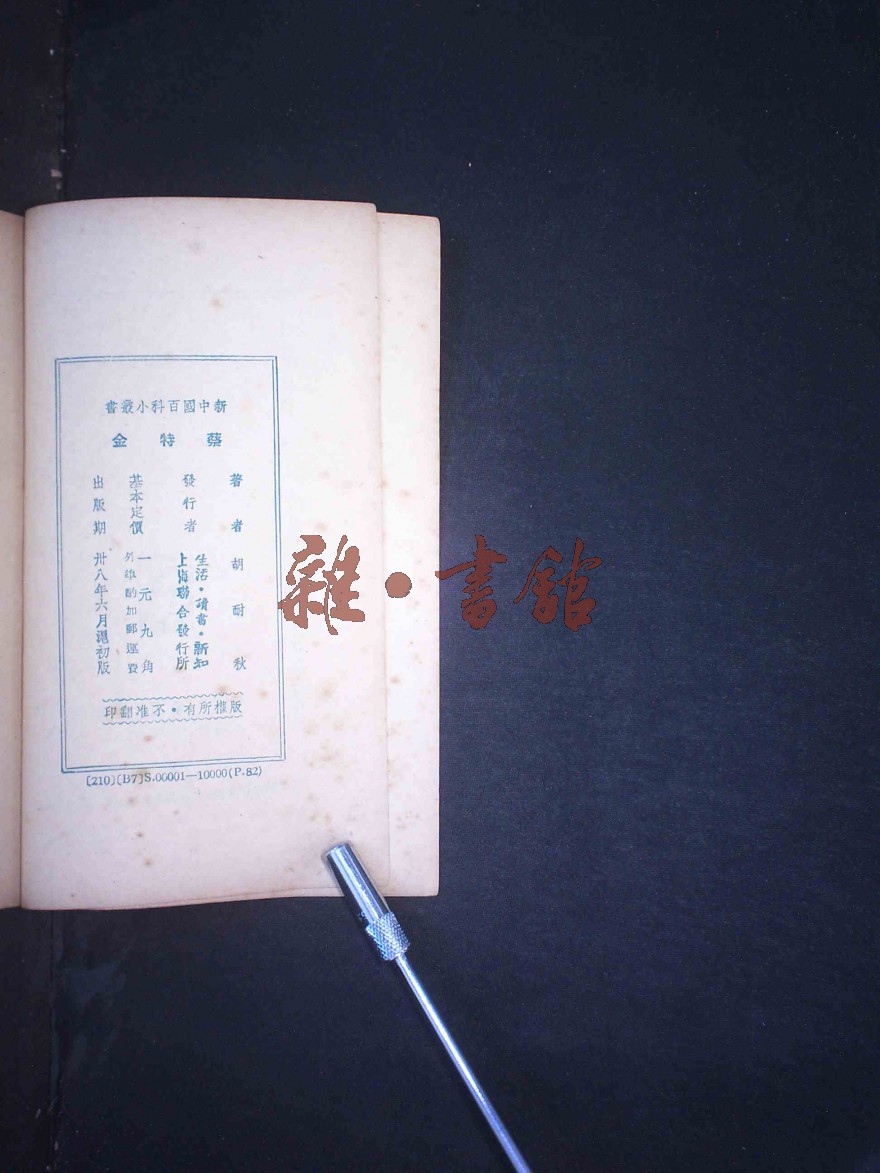 新中國百科小叢書
蔡特金
著者 胡耐秋
發行者 生活·讀書·新知
上海聯合發行所
基本定價 一元九角
外埠酌加郵運費
出版期 卅八年六月滬初版
版權所有·不准翻印
〔210〕〔B7〕S.00001—10000(P.82)
雜·書館